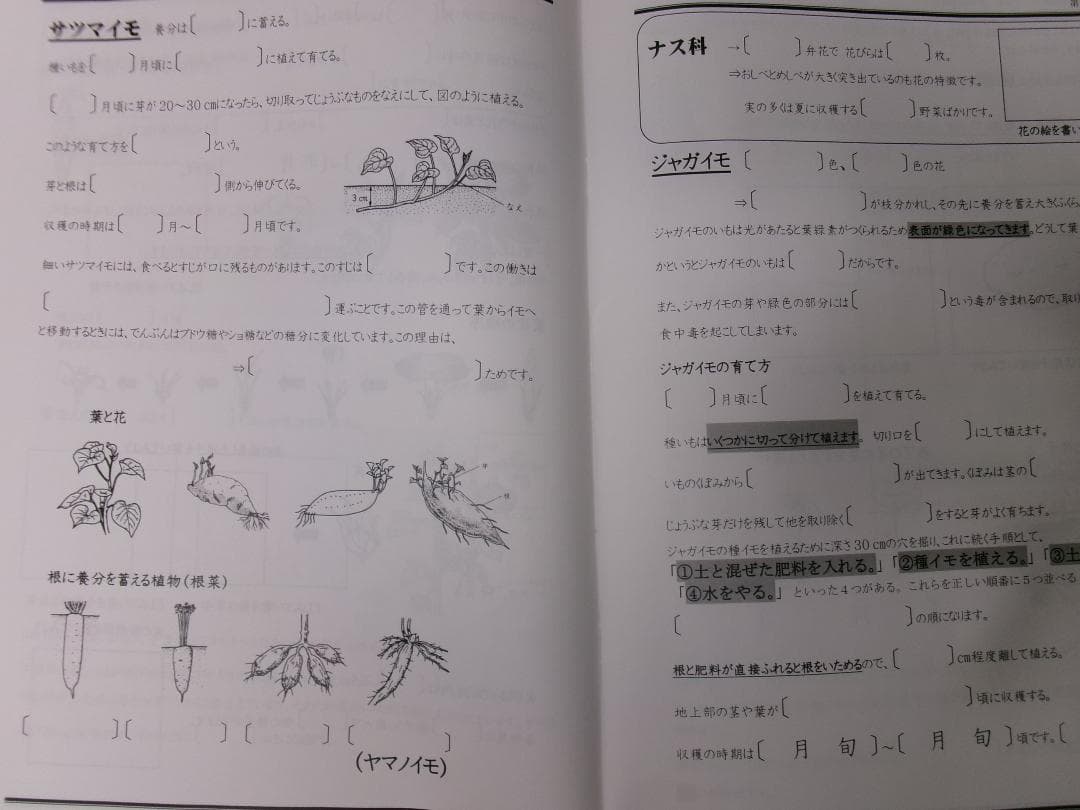 サツマイモ 養分は〔 〕に蓄える。
種いもを〔 〕月頃に〔 〕に植えて育てる。
〔 〕月頃に芽が20～30cmになったら、切り取ってじょうぶなものをなえにして、図のように植える。
このような育て方を〔 〕という。
芽と根は〔 〕側から伸びてくる。
収穫の時期は〔 〕月～〔 〕月頃です。
3cm
なえ
細いサツマイモには、食べるとすじが口に残るものがあります。このすじは〔 〕です。この働きは
〔 〕運ぶことです。この管を通って葉からイモへ
と移動するときには、でんぷんはブドウ糖やショ糖などの糖分に変化しています。この理由は、
⇒〔 〕ためです。
葉と花
芽
根
根に養分を蓄える植物(根菜)
〔 〕〔 〕〔 〕〔 〕
(ヤマノイモ)
第
ナス科 →〔 〕弁花で 花びらは〔 〕枚。
⇒おしべとめしべが大きく突き出ているのも花の特徴です。
実の多くは夏に収穫する〔 〕野菜ばかりです。
花の絵を書い
ジャガイモ 〔 〕色、〔 〕色の花
⇒〔 〕が枝分かれし、その先に養分を蓄え大きくふくら
ジャガイモのいもは光があたると葉緑素がつくられるため表面が緑色になってきます。どうして葉
かというとジャガイモのいもは〔 〕だからです。
また、ジャガイモの芽や緑色の部分には〔 〕という毒が含まれるので、取り
食中毒を起こしてしまいます。
ジャガイモの育て方
〔 〕月頃に〔 〕を植えて育てる。
種いもはいくつかに切って分けて植えます。 切り口を〔 〕にして植えます。
いものくぼみから〔 〕が出てきます。くぼみは茎の〔
じょうぶな芽だけを残して他を取り除く〔 〕をすると芽がよく育ちます。
ジャガイモの種イモを植えるために深さ30cmの穴を掘り、これに続く手順として、
「①土と混ぜた肥料を入れる。」「②種イモを植える。」「③土
「④水をやる。」といった4つがある。これらを正しい順番に5つ並べる
〔 〕の順になります。
根と肥料が直接ふれると根をいためるので、〔 〕cm程度離して植える。
地上部の茎や葉が〔 〕頃に収穫する。
収穫の時期は〔 月 旬〕～〔 月 旬〕頃です。〔